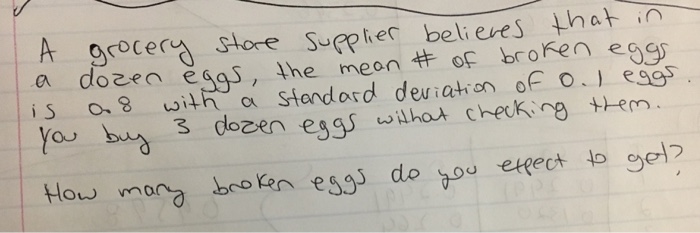 A grocery store supplier believes that in
a dozen eggs, the mean # of broken eggs
is 0.8 with a standard deviation of 0.1 eggs.
You buy 3 dozen eggs without checking them.
How many broken eggs do you expect to get?